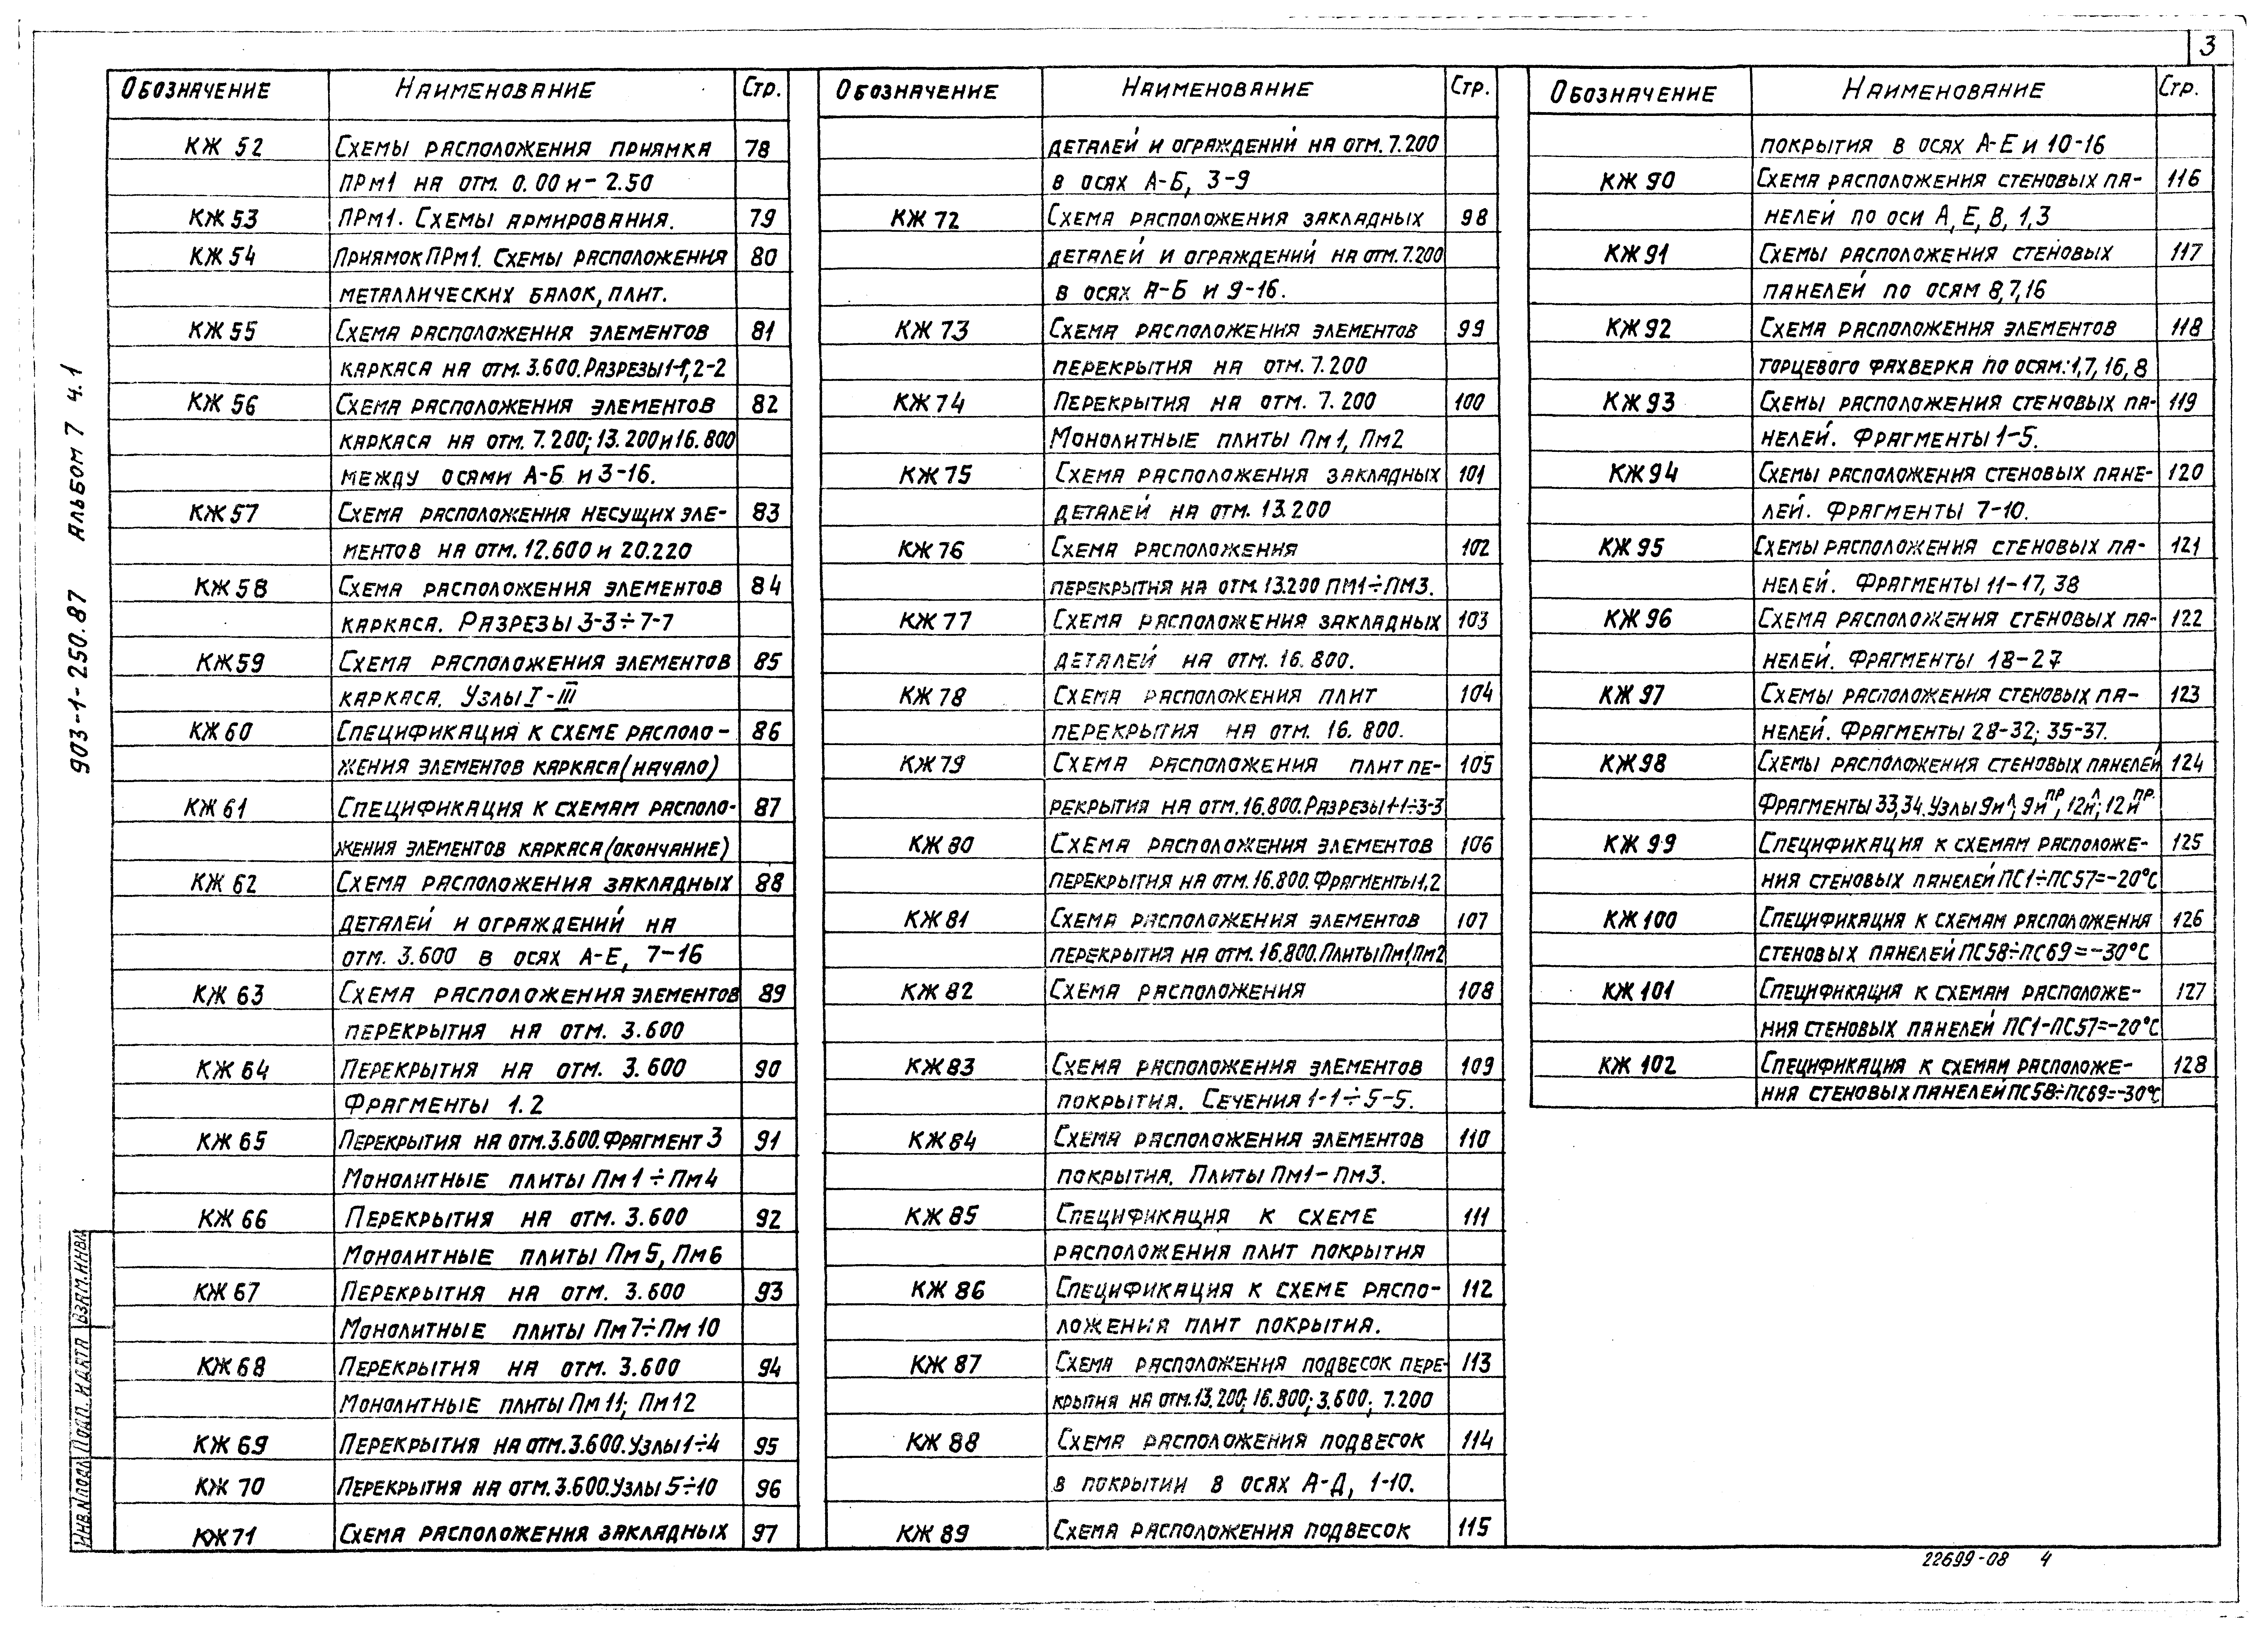 3
Обозначение Наименование Стр.
КЖ 52 Схемы расположения приямка 78
ПРм1 на отм. 0.00 и -2.50
КЖ 53 ПРм1. Схемы армирования. 79
КЖ 54 Приямок ПРм1. Схемы расположения 80
металлических балок, плит.
КЖ 55 Схема расположения элементов 81
каркаса на отм. 3.600. Разрезы 1-1, 2-2
КЖ 56 Схема расположения элементов 82
каркаса на отм. 7.200; 13.200 и 16.800
между осями А-Б и 3-16.
КЖ 57 Схема расположения несущих эле-83
ментов на отм. 12.600 и 20.220
КЖ 58 Схема расположения элементов 84
каркаса. Разрезы 3-3÷7-7
КЖ 59 Схема расположения элементов 85
каркаса. Узлы I-III
КЖ 60 Спецификация к схеме располо- 86
жения элементов каркаса (начало)
КЖ 61 Спецификация к схемам располо- 87
жения элементов каркаса (окончание)
КЖ 62 Схема расположения закладных 88
деталей и ограждений на
отм. 3.600 в осях А-Е, 7-16
КЖ 63 Схема расположения элементов 89
перекрытия на отм. 3.600
КЖ 64 Перекрытия на отм. 3.600 90
Фрагменты 1.2
КЖ 65 Перекрытия на отм. 3.600. Фрагмент 3 91
Монолитные плиты Пм1÷Пм4
КЖ 66 Перекрытия на отм. 3.600 92
Монолитные плиты Пм5, Пм6
КЖ 67 Перекрытия на отм. 3.600 93
Монолитные плиты Пм7÷Пм10
КЖ 68 Перекрытия на отм. 3.600 94
Монолитные плиты Пм11; Пм12
КЖ 69 Перекрытия на отм. 3.600. Узлы 1÷4 95
КЖ 70 Перекрытия на отм. 3.600. Узлы 5÷10 96
КЖ 71 Схема расположения закладных 97
Обозначение Наименование Стр.
деталей и ограждений на отм. 7.200
в осях А-Б, 3-9
КЖ 72 Схема расположения закладных 98
деталей и ограждений на отм. 7.200
в осях А-Б и 9-16.
КЖ 73 Схема расположения элементов 99
перекрытия на отм. 7.200
КЖ 74 Перекрытия на отм. 7.200 100
Монолитные плиты Пм1, Пм2
КЖ 75 Схема расположения закладных 101
деталей на отм. 13.200
КЖ 76 Схема расположения 102
перекрытия на отм. 13.200 ПМ1÷ПМ3.
КЖ 77 Схема расположения закладных 103
деталей на отм. 16.800.
КЖ 78 Схема расположения плит 104
перекрытия на отм. 16.800.
КЖ 79 Схема расположения плит пе- 105
рекрытия на отм. 16.800. Разрезы 1-1÷3-3
КЖ 80 Схема расположения элементов 106
перекрытия на отм. 16.800. Фрагменты 1,2
КЖ 81 Схема расположения элементов 107
перекрытия на отм. 16.800. Плиты Пм1, Пм2
КЖ 82 Схема расположения 108
КЖ 83 Схема расположения элементов 109
покрытия. Сечения 1-1÷5-5.
КЖ 84 Схема расположения элементов 110
покрытия. Плиты Пм1-Пм3.
КЖ 85 Спецификация к схеме 111
расположения плит покрытия
КЖ 86 Спецификация к схеме распо- 112
ложения плит покрытия.
КЖ 87 Схема расположения подвесок пере- 113
крытия на отм. 13.200; 16.800; 3.600; 7.200
КЖ 88 Схема расположения подвесок 114
в покрытии в осях А-Д, 1-10.
КЖ 89 Схема расположения подвесок 115
Обозначение Наименование Стр.
покрытия в осях А-Е и 10-16
КЖ 90 Схема расположения стеновых па- 116
нелей по оси А, Е, В, 1,3
КЖ 91 Схемы расположения стеновых 117
панелей по осям 8,7,16
КЖ 92 Схема расположения элементов 118
торцевого фахверка по осям: 1,7, 16, 8
КЖ 93 Схемы расположения стеновых па- 119
нелей. Фрагменты 1-5.
КЖ 94 Схемы расположения стеновых пане- 120
лей. Фрагменты 7-10.
КЖ 95 Схемы расположения стеновых па- 121
нелей. Фрагменты 11-17, 38
КЖ 96 Схема расположения стеновых па- 122
нелей. Фрагменты 18-27
КЖ 97 Схемы расположения стеновых па- 123
нелей. Фрагменты 28-32; 35-37.
КЖ 98 Схемы расположения стеновых панелей 124
Фрагменты 33,34. Узлы 9и л; 9и пр, 12и л; 12и пр.
КЖ 99 Спецификация к схемам расположе- 125
ния стеновых панелей ПС1÷ПС57=-20°С
КЖ 100 Спецификация к схемам расположения 126
стеновых панелей ПС58÷ПС69=-30°С
КЖ 101 Спецификация к схемам расположе- 127
ния стеновых панелей ПС1-ПС57=-20°С
КЖ 102 Спецификация к схемам расположе- 128
ния стеновых панелей ПС58÷ПС69=-30°С
903-1-250.87 Альбом 7 ч.1
Инв.№ подл. Подп. и дата Взам.инв.№
22699-08 4